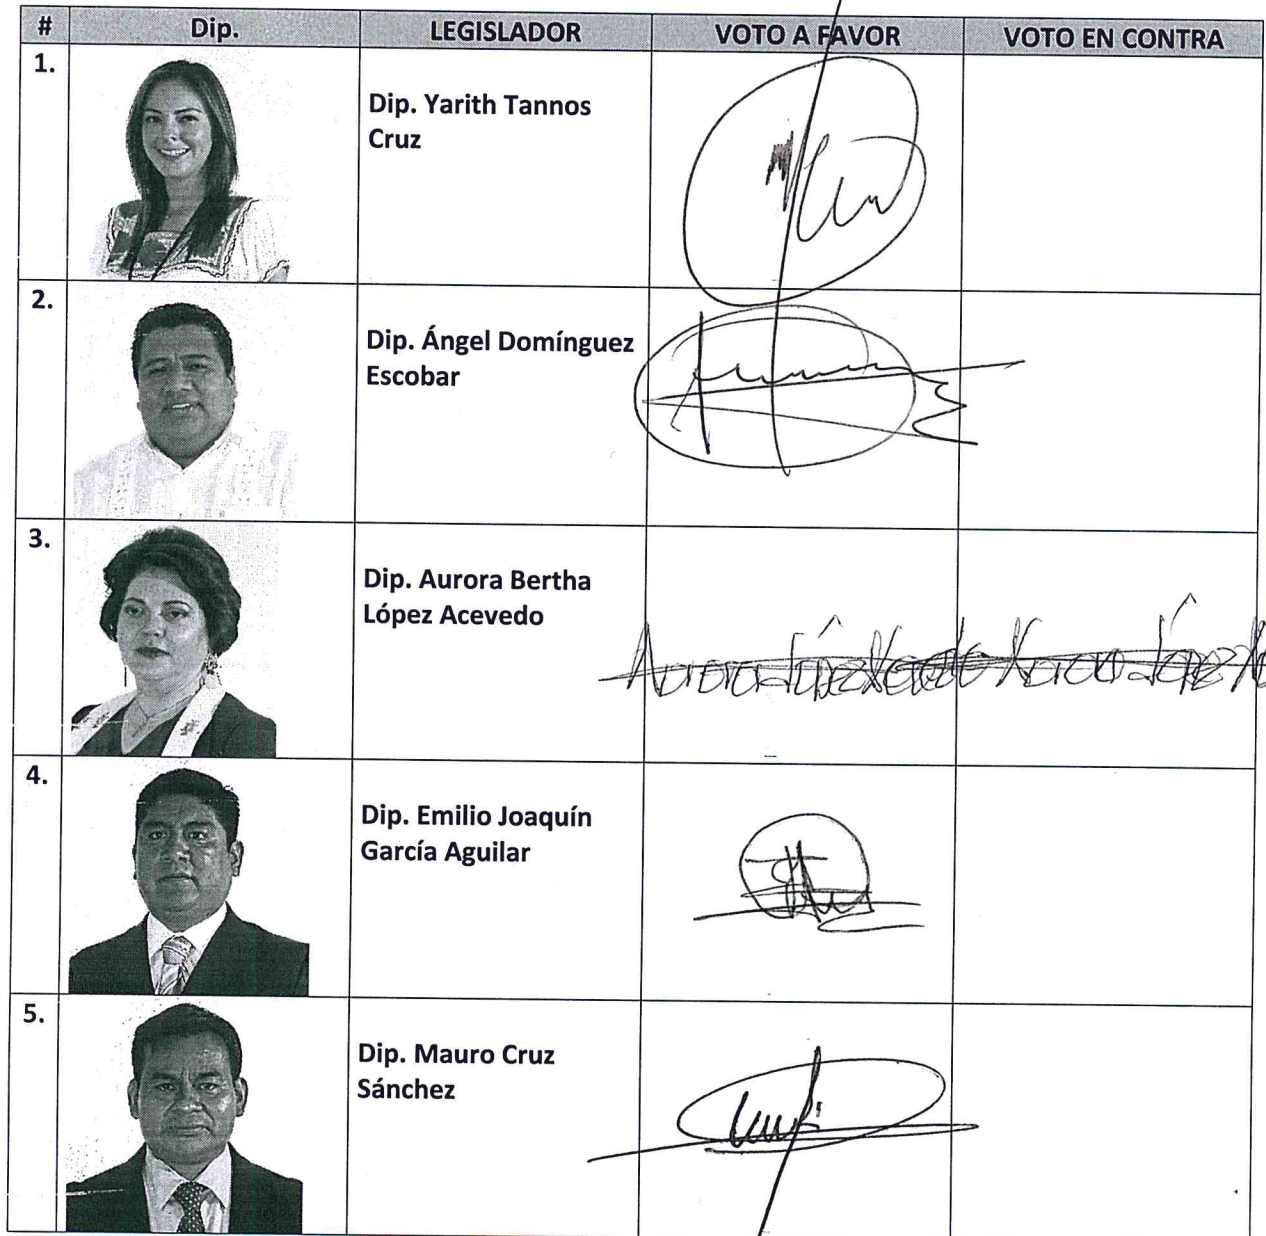 # Dip. LEGISLADOR VOTO A FAVOR VOTO EN CONTRA
1.
Dip. Yarith Tannos
Cruz
2.
Dip. Ángel Domínguez
Escobar
3.
Dip. Aurora Bertha
López Acevedo
Aurora López Acevedo Aurora López
4.
Dip. Emilio Joaquín
García Aguilar
5.
Dip. Mauro Cruz
Sánchez